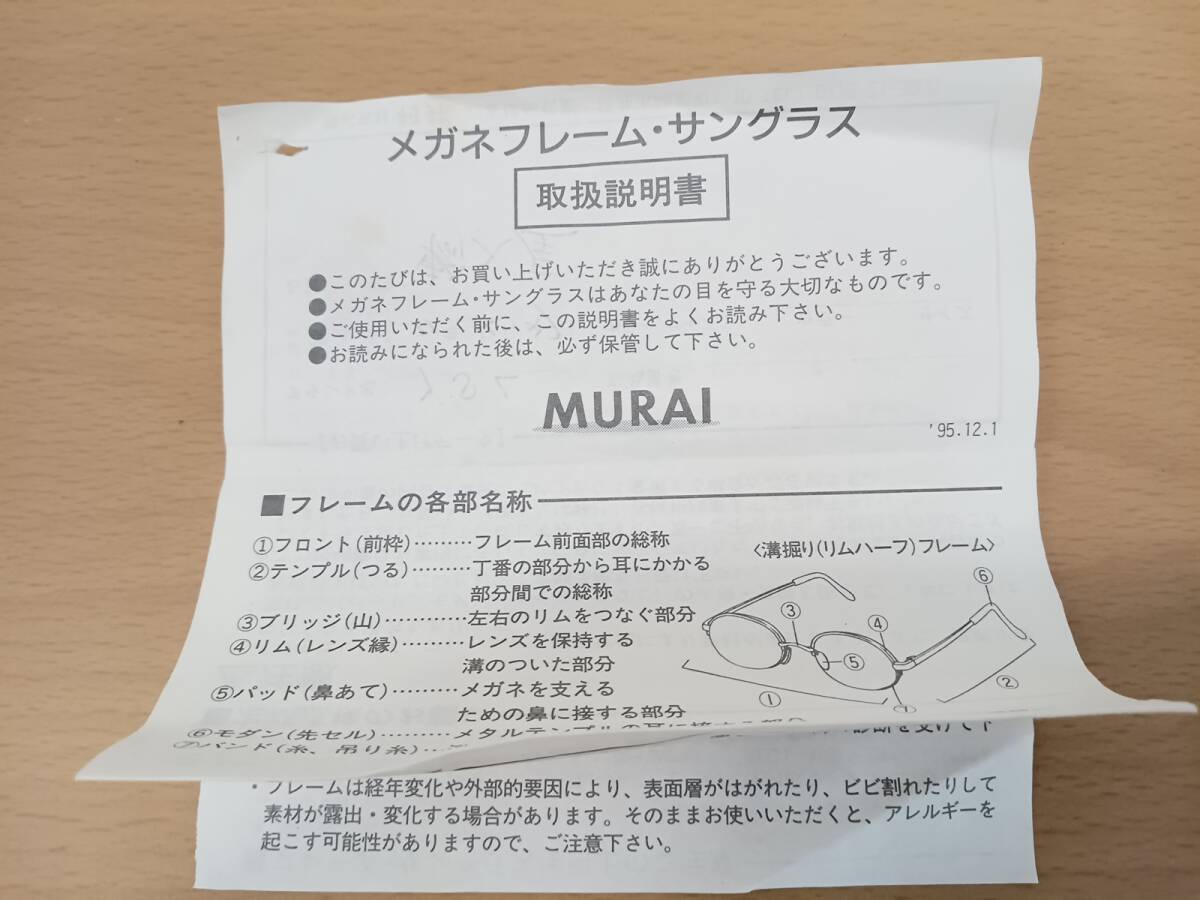 メガネフレーム・サングラス
取扱説明書
●このたびは、お買い上げいただき誠にありがとうございます。
●メガネフレーム・サングラスはあなたの目を守る大切なものです。
●ご使用いただく前に、この説明書をよくお読み下さい。
●お読みになられた後は、必ず保管して下さい。
MURAI
'95.12.1
■フレームの各部名称
①フロント(前枠)………フレーム前面部の総称
②テンプル(つる)………丁番の部分から耳にかかる
部分間での総称
③ブリッジ(山)…………左右のリムをつなぐ部分
④リム(レンズ縁)………レンズを保持する
溝のついた部分
⑤パッド(鼻あて)………メガネを支える
ための鼻に接する部分
⑥モダン(先セル)………メタルテンプルの耳に接する部分
⑦バンド(糸、吊り糸)…
〈溝掘り(リムハーフ)フレーム〉
③ ④ ⑥
⑤
① ②
⑦
診断を受けて下
・フレームは経年変化や外部的要因により、表面層がはがれたり、ビビ割れたりして
素材が露出・変化する場合があります。そのままお使いいただくと、アレルギーを
起こす可能性がありますので、ご注意下さい。